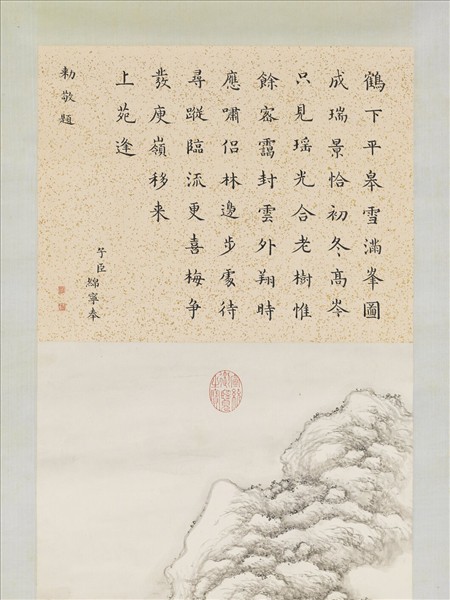 鶴下平皋雪滿峯圖
成瑞景恰初冬高岑
只見瑶光合老樹惟
餘密靄封雲外翔時
應嘯侶林邊步處待
尋蹤臨流更喜梅爭
發庾嶺移來
上苑逢
子臣綿寧奉
勅敬題
宣統御覽之寶